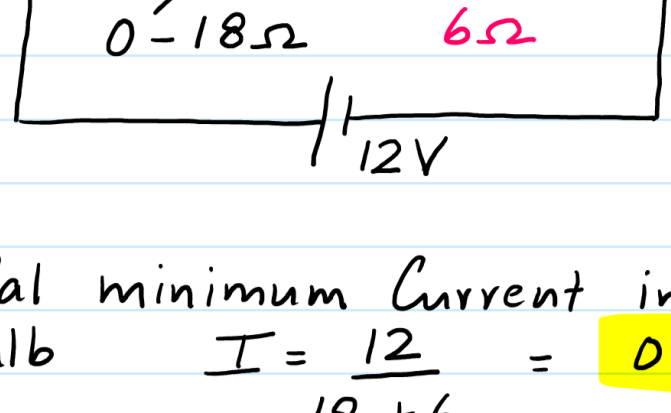 0-18Ω 6Ω
12V
al minimum Current in
lb I = 12 = 0
18 + 6